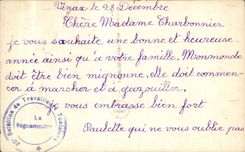 Vinax le 28 Décembre
Chère Madame Charbonnier
je vous souhaite une bonne et heureuse
année ainsi qu'à votre famille. Monmonde
doit être bien mignonne, elle doit commen-
cer à marcher et à gazouiller.
je vous embrasse bien fort
Paulette qui ne vous oublie pas
Bataillon de Travailleurs
Le
Vaguemestre